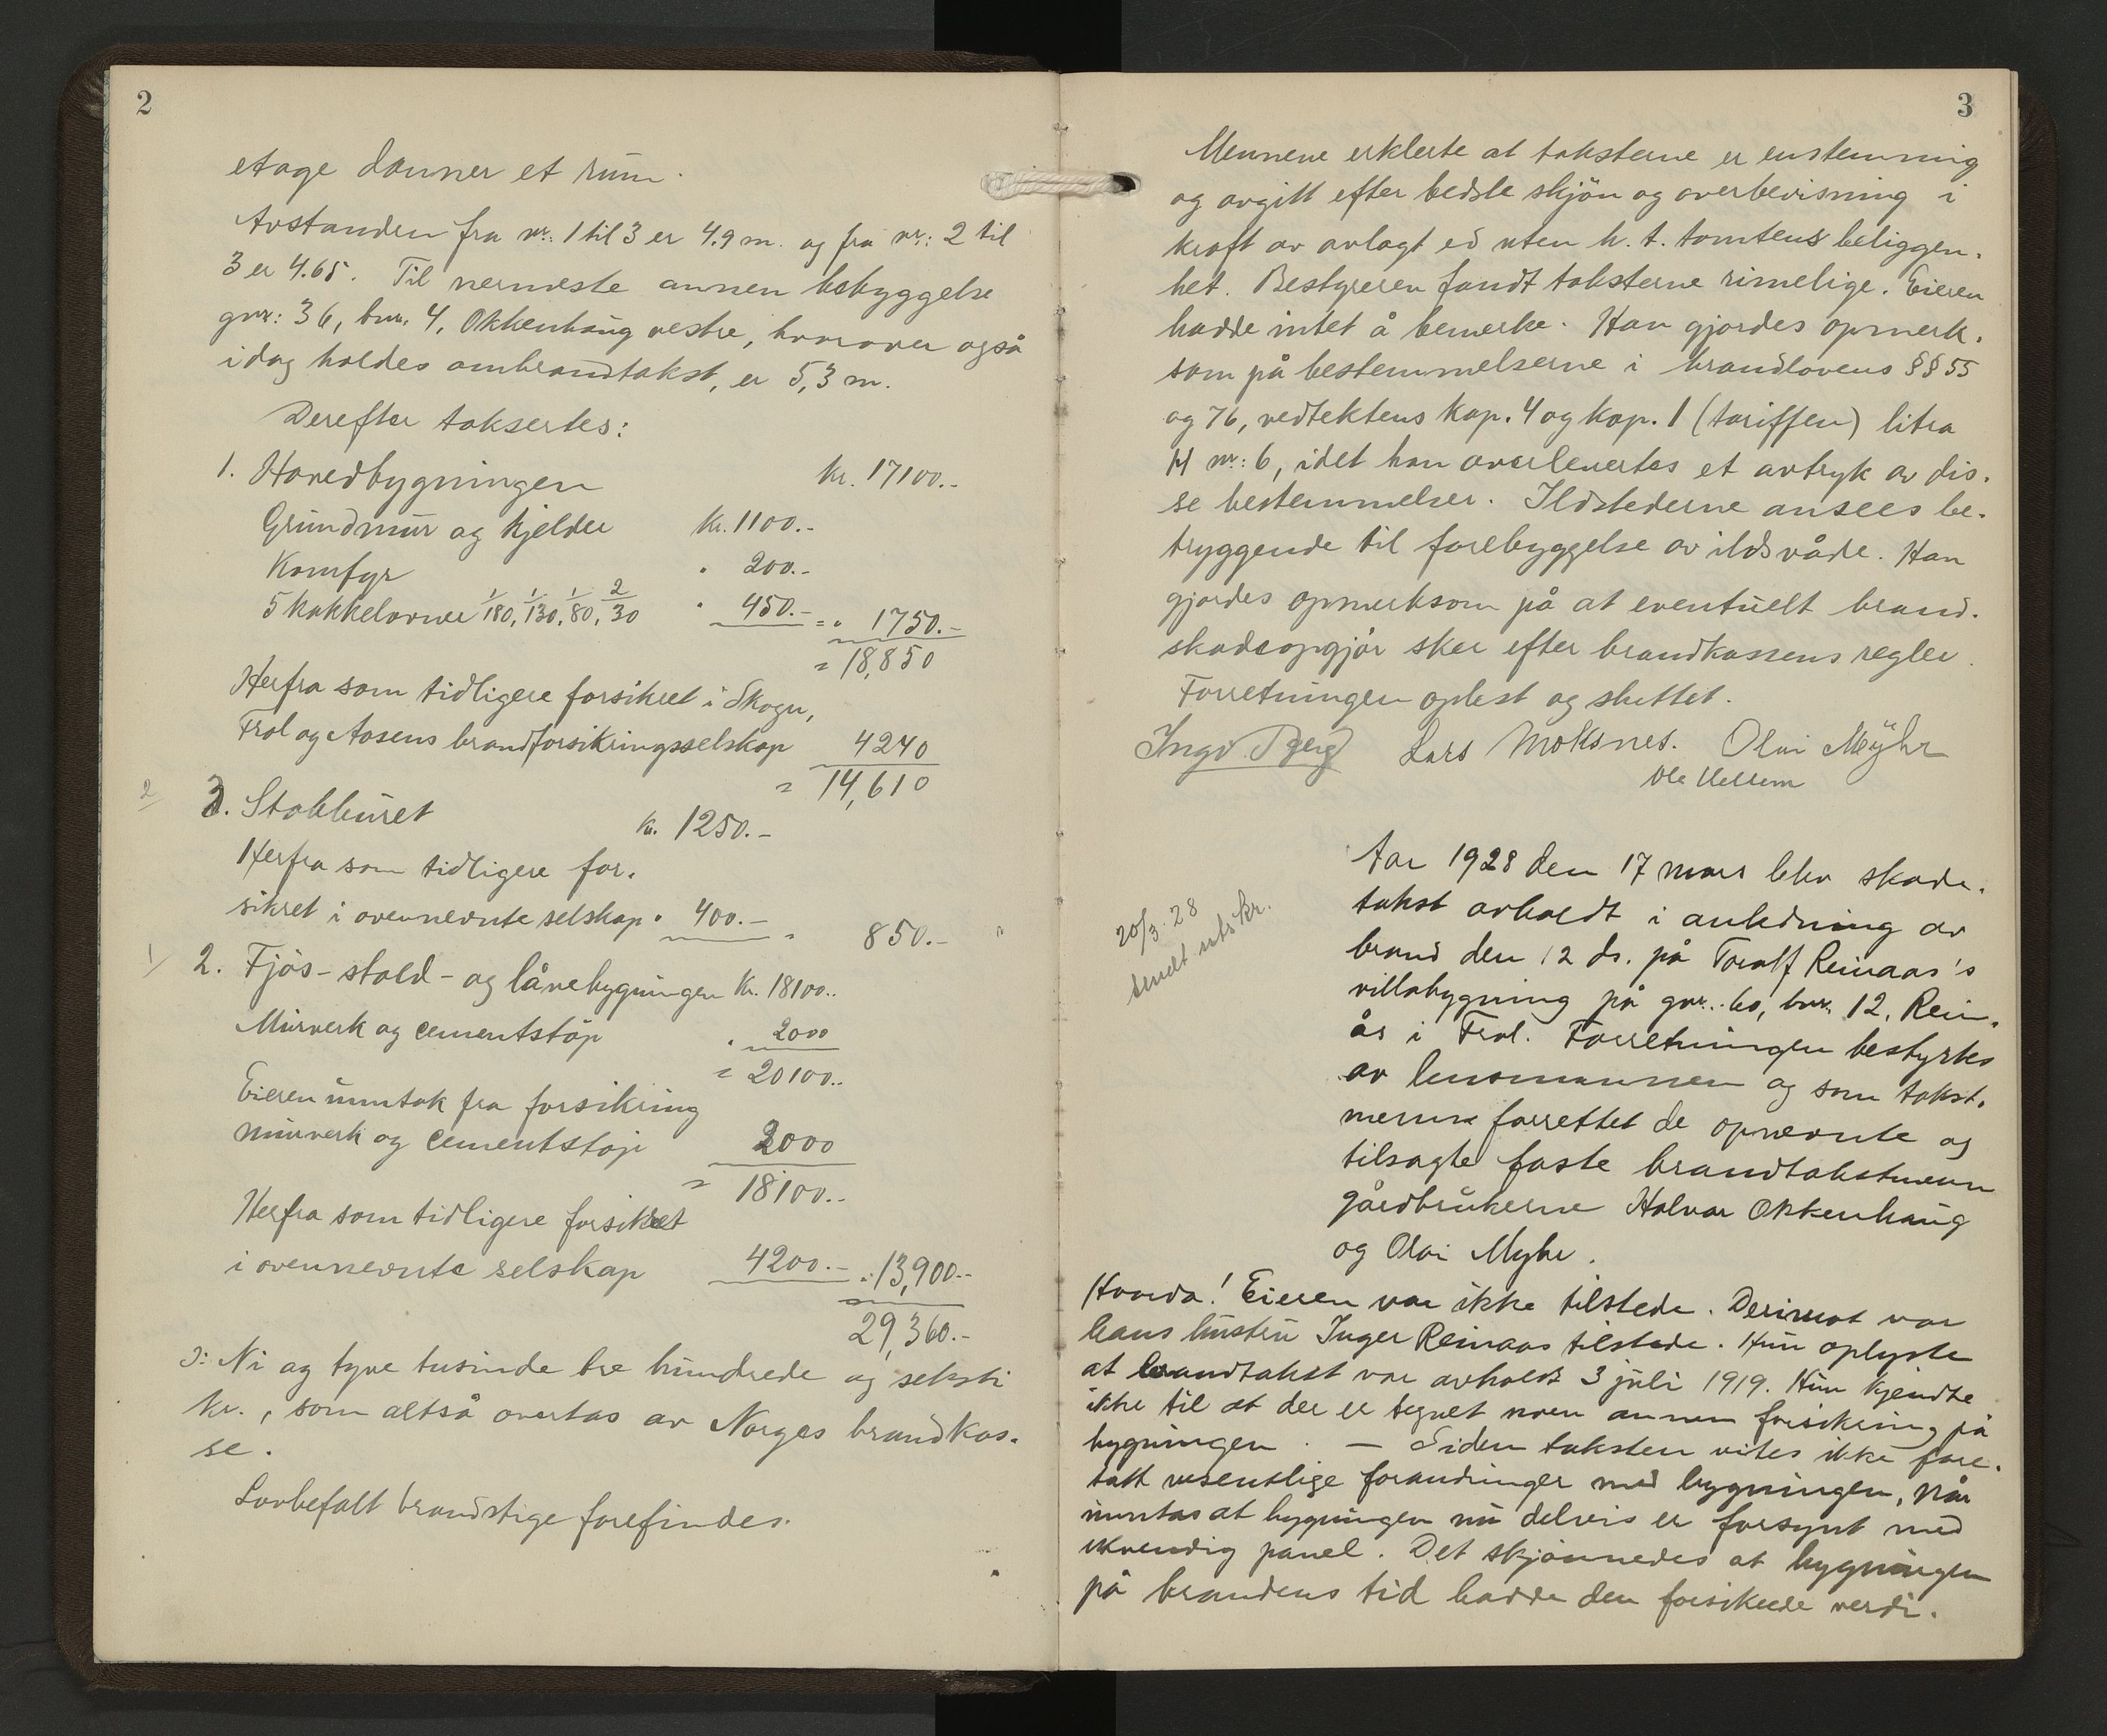 2
etage danner et rum.
Avstanden fra nr: 1 til 3 er 4.9 m. og fra nr: 2 til
3 er 4.65. Til nermeste annen bebyggelse
gnr: 36, bnr. 4, Okkenhaug vestre, hvorover også
idag holdes ombrandtakst, er 5,3 m.
Derefter taksertes:
1. Hovedbygningen kr. 17100.-
Grundmur og kjelder kr. 1100.-
Komfyr " 200.-
5 kakkelovner 1/180, 1/130, 1/80, 2/30 " 450.- = " 1750.-
= 18,850
Herfra som tidligere forsikret i Skogn,
Frol og Aasens brandforsikringsselskap 4240
= 14,610
2 3. Stabburet kr. 1250.-
Herfra som tidligere for-
sikret i ovennevnte selskap " 400.- " 850.-
1 2. Fjøs- stald- og låvebygningen kr. 18100..
Murverk og cementstøp " 2000
= 20100..
Eieren unntok fra forsikring
murverk og cementstøp 2000
= 18100..
Herfra som tidligere forsikret
i ovennevnte selskap 4200.- " 13,900.-
29,360.-
ɔ: Ni og tyve tusinde tre hundrede og seksti
kr., som altså overtas av Norges brandkas-
se.
Lovbefalt brandstige forefindes.
3
Mennene erklerte at taksterne er enstemmig
og avgitt efter bedste skjön og overbevisning i
kraft av avlagt ed uten h. t. tomtens beliggen-
het. Bestyreren fandt taksterne rimelige. Eieren
hadde intet å bemerke. Han gjordes opmerk-
som på bestemmelserne i brandlovens §§ 55
og 76, vedtektens kap. 4 og kap. 1 (tariffen) litra
H nr: 6, idet han overlevertes et avtryk av dis-
se bestemmelser. Ildstederne ansees be-
tryggende til forebyggelse av ildsvåde. Han
gjordes opmerksom på at eventuelt brand-
skadeopgjør sker efter brandkassens regler.
Forretningen oplest og sluttet.
Ingv. Berg Lars Moksnes. Olai Mÿhr
Ole Vellem
20/3.28
sendt utskr.
Aar 1928 den 17 mars blev skade-
takst avholdt i anledning av
brand den 12 ds. på Toralf Reinaas's
villabygning på gnr. 60, bnr. 12, Rein-
ås i Frol. Forretningen bestyrtes
av lensmannen og som takst-
menn forrettet de opnevnte og
tilsagte faste brandtakstmenn
gårdbrukerne Halvar Okkenhaug
og Olai Myhr.
Hvorda! Eieren var ikke tilstede. Derimot var
hans hustru Inger Reinaas tilstede. Hun oplyste
at brandtakst var avholdt 3 juli 1919. Hun kjendte
ikke til at der er tegnet noen annen forsikring på
bygningen. — Siden taksten vites ikke fore-
tatt vesentlige forandringer med bygningen, når
unntas at bygningen nu delvis er forsynt med
utvendig panel. Det skjønnedes at bygningen
på brandens tid hadde den forsikrede verdi.